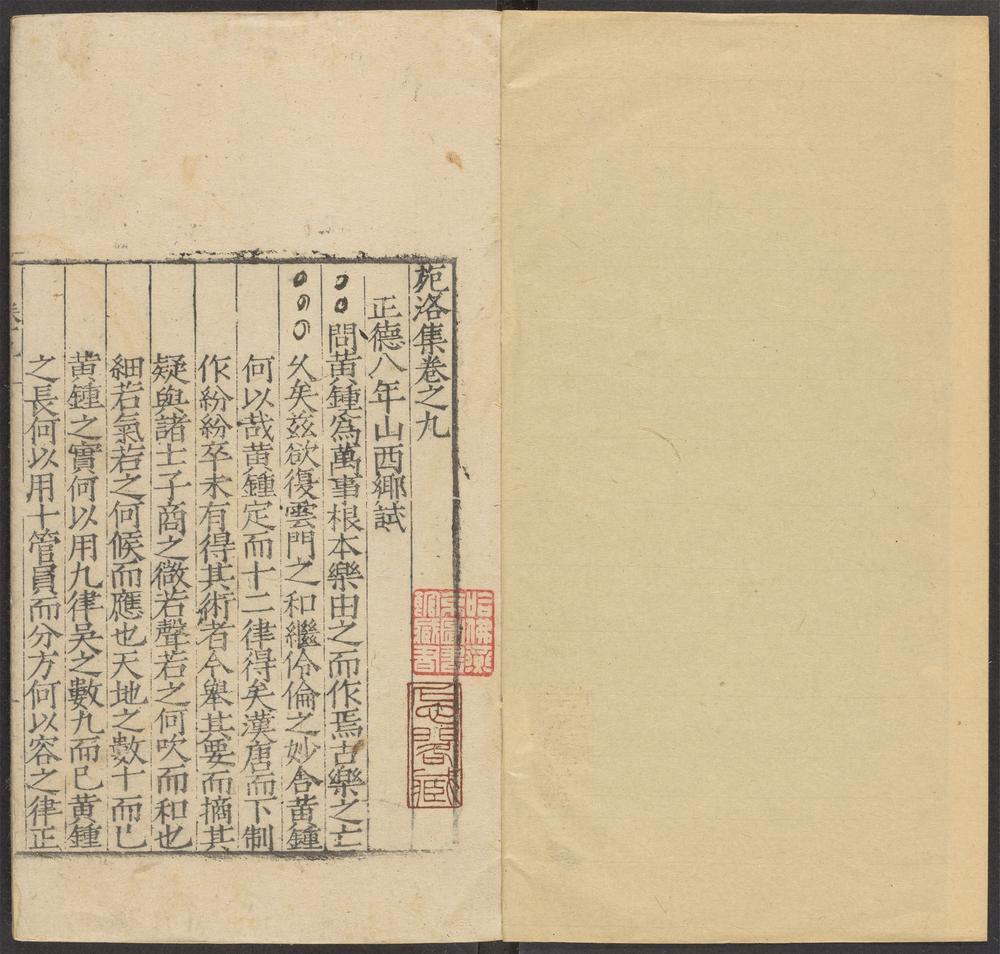 苑洛集卷之九
正德八年山西鄉試
問黃鍾為萬事根本樂由之而作焉古樂之亡
久矣茲欲復雲門之和繼伶倫之妙舍黃鍾
何以哉黃鍾定而十二律得矣漢唐而下制
作紛紛卒未有得其術者今舉其要而摘其
疑與諸士子商之微若聲若之何吹而和也
細若氣若之何候而應也天地之數十而已
黃鍾之實何以用九律呂之數九而已黃鍾
之長何以用十管員而分方何以容之律正
哈佛燕
京圖書
館藏書